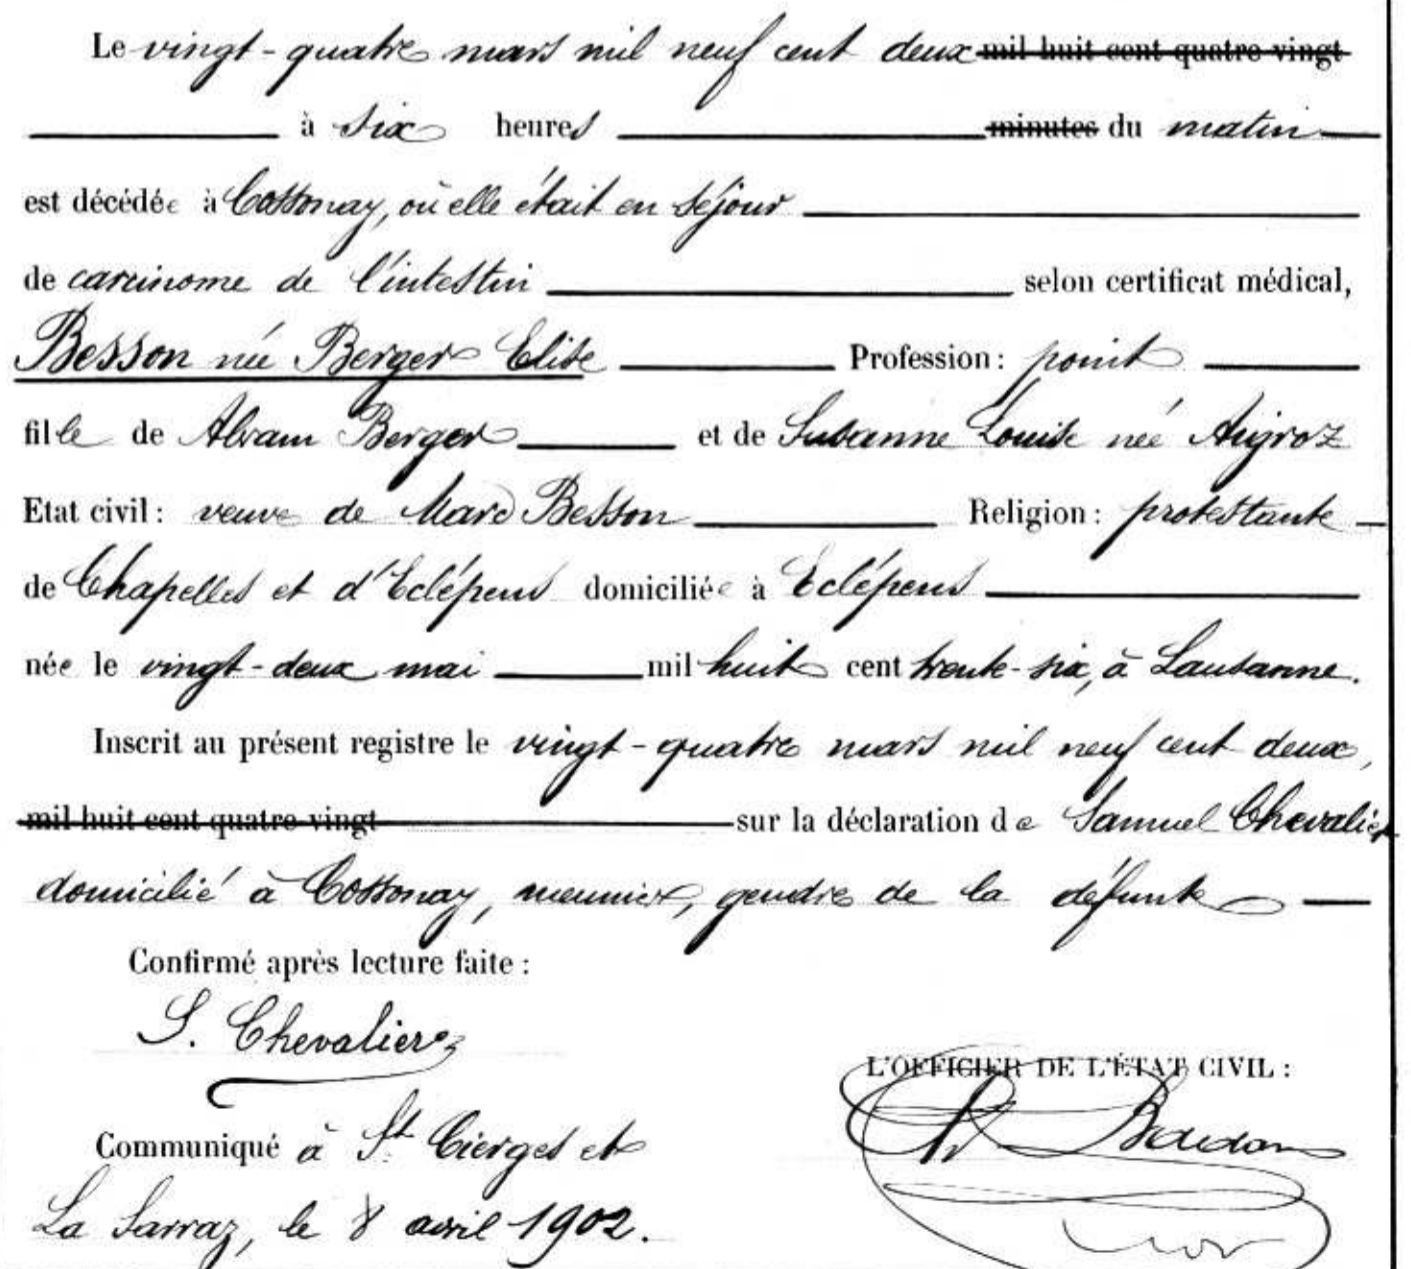 Le vingt-quatre mars mil neuf cent deux mil huit cent quatre vingt
à six heures minutes du matin
est décédée à Cossonay, où elle était en séjour
de carcinome de l'intestin selon certificat médical,
Besson née Berger Elise Profession: point
fille de Abram Berger et de Susanne Louise née Augroz
Etat civil: veuve de Marc Besson Religion: protestante
de Chapelles et d'Eclépens domiciliée à Eclépens
née le vingt-deux mai mil huit cent trente-six, à Lausanne.
Inscrit au présent registre le vingt-quatre mars mil neuf cent deux,
mil huit cent quatre vingt sur la déclaration de Samuel Chevalier
domicilié à Cossonay, meunier, gendre de la défunte
Confirmé après lecture faite:
S. Chevalier
L'OFFICIER DE L'ÉTAT CIVIL:
Communiqué à St Cierges et
La Sarraz, le 8 avril 1902.